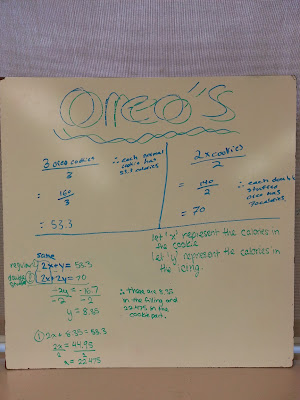 OREO'S
3 oreo cookies
3
= 160
3
= 53.3
∴ each normal
cookie has
53.3 calories
2x cookies
2
= 140
2
= 70
∴ each double
stuffed
oreo has
70 calories
let 'x' represent the calories in
the cookie
let 'y' represent the calories in
the icing.
same
regular ① 2x+y= 53.3
double stuffed ② 2x+2y= 70
-y= -16.7
-2 -2
y = 8.35
∴ there are 8.35
in the filling and
22.475 in the
cookie part.
① 2x + 8.35 = 53.3
2x = 44.95
2 2
x = 22.475